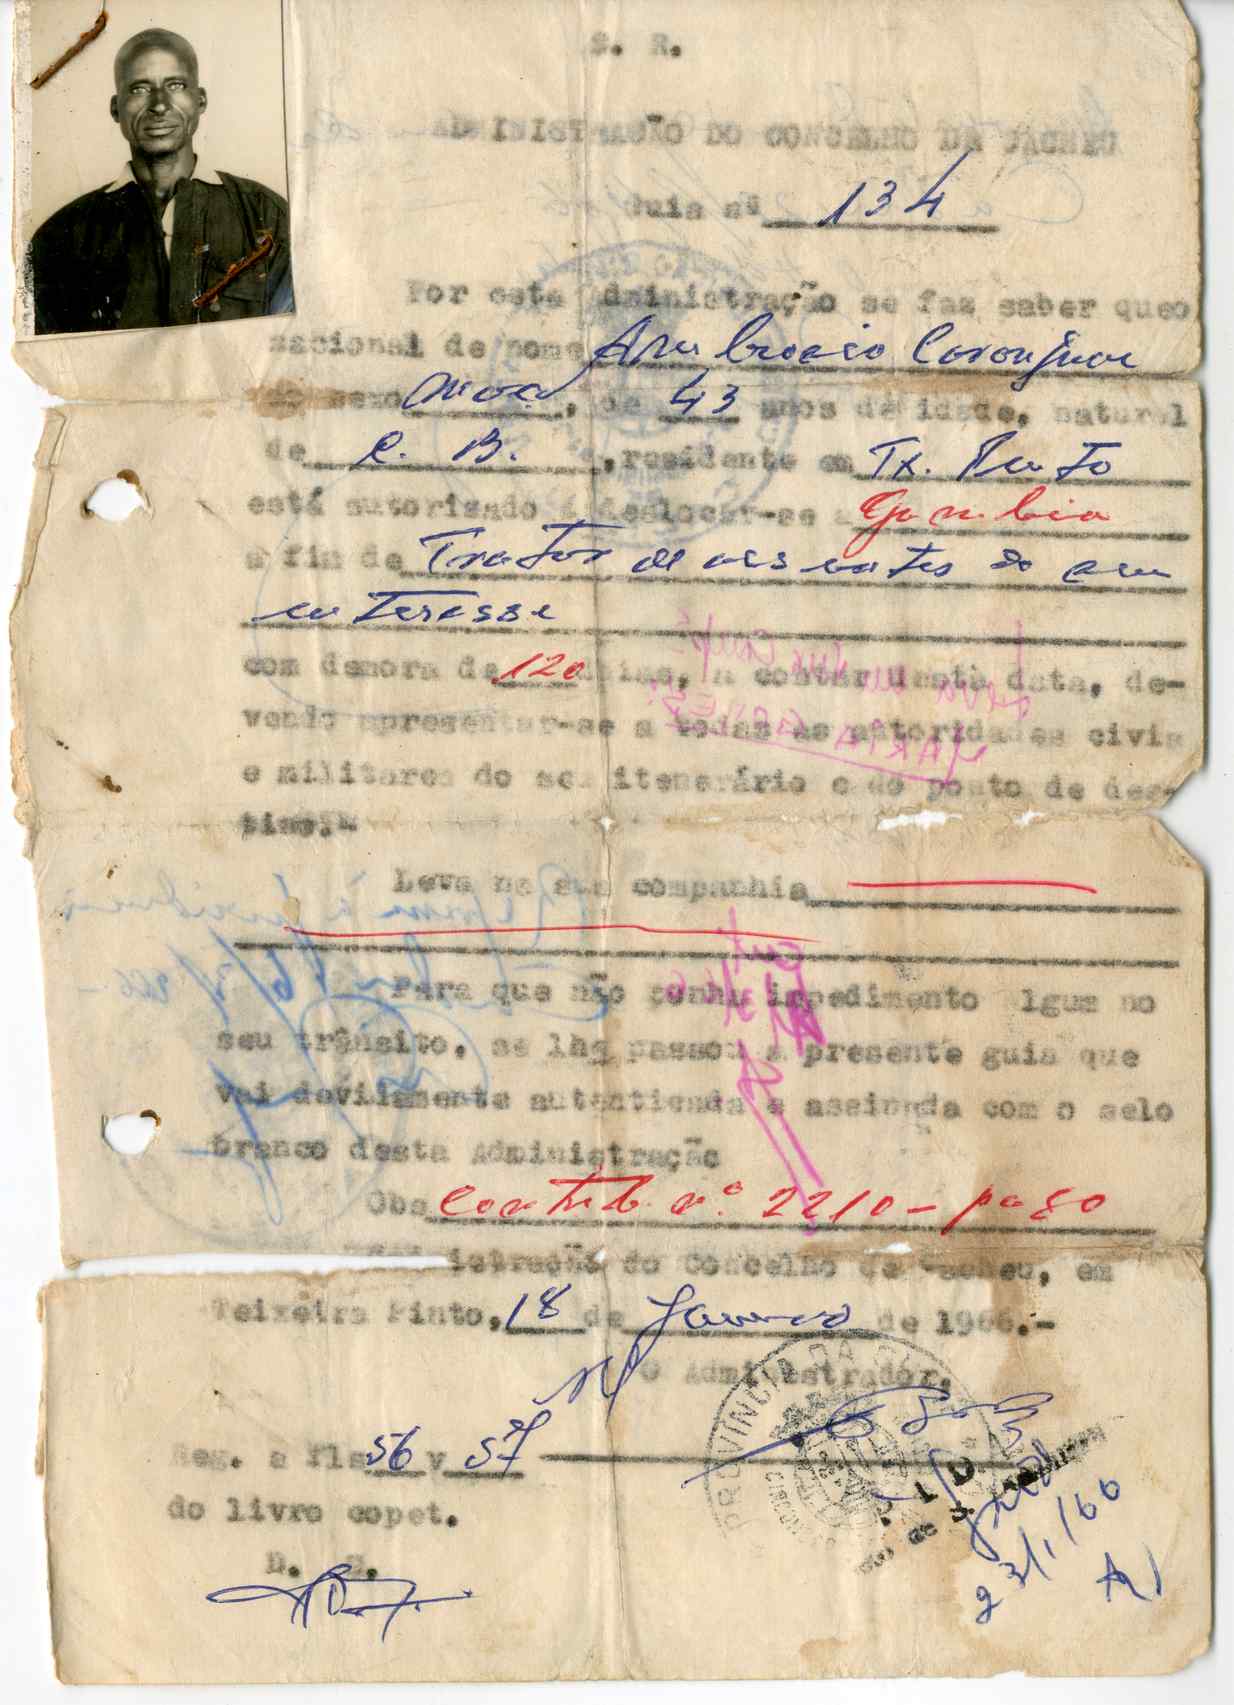 S. R.
ADMINISTRAÇÃO DO CONCELHO DE CACHEU
Guia nº 134
Por esta Administração se faz saber que o
nacional de nome Ambrocio
do sexo masc., de 43 anos de idade, natural
de C. B. , residente em Tx. Pinto
está autorizado á deslocar-se a Gambia
a fin de Tratar de assuntos do seu
interesse
com demora de 120 dias, a contar desta data, de-
vendo apresentar-se a todas as autoridades civis
e militares do seu itenerário e do ponto de des-
tino.-
Leva na sua companhia
Para que não tenha impedimento algum no
seu trânsito, se lhe passou a presente guia que
vai devidamente autenticada e assinada com o selo
branco desta Administração
Obs Contrib. nº 2210 - pago
Administração do Concelho de Cacheu, em
Teixeira Pinto, 18 de Janeiro de 1966.-
O Administrador,
Reg. a fls 56 v 57
do livro copet.
PROVÍNCIA DA
P I D
23/1/66